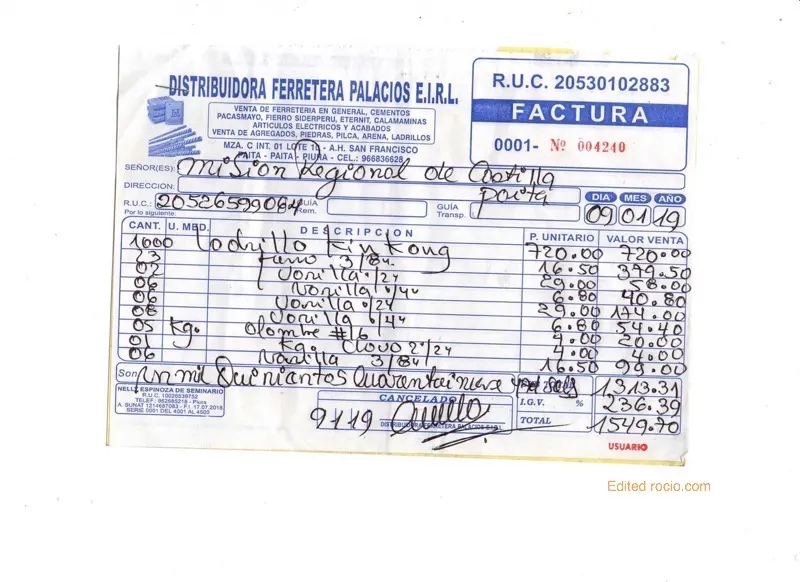 DISTRIBUIDORA FERRETERA PALACIOS E.I.R.L.
VENTA DE FERRETERIA EN GENERAL, CEMENTOS
PACASMAYO, FIERRO SIDERPERU, ETERNIT, CALAMAMINAS
ARTICULOS ELECTRICOS Y ACABADOS
VENTA DE AGREGADOS, PIEDRAS, PILCA, ARENA, LADRILLOS
MZA. C INT. 01 LOTE 10 - A.H. SAN FRANCISCO
PAITA - PAITA - PIURA - CEL.: 966836628
R.U.C. 20530102883
FACTURA
0001- Nº 004240
SEÑOR(ES): Mision Regional de Castilla
DIRECCION: paita
DIA MES AÑO
R.U.C.: 20526599064 GUIA Rem. GUÍA Transp. 09 01 19
Por lo siguiente:
CANT. U. MED. DESCRIPCION P. UNITARIO VALOR VENTA
1000 Ladrillo KinKong 720.00 720.00
23 3/8 16.50 379.50
02 Varilla 29.00 58.00
06 Varilla 6.80 40.80
06 Varilla 29.00 174.00
08 Varilla 6.80 54.40
05 Kg. alambre #16 4.00 20.00
01 Kg. Clavo 4.00 4.00
06 Varilla 3/8 16.50 99.00
Son: Un mil Quinientos Cuarentainueve 1313.31
NELLY ESPINOZA DE SEMINARIO
R.U.C. 10026539752
TELEF.: 952685218 - Piura
A. SUNAT 1214667083 - F.I. 17.07.2018
SERIE 0001 DEL 4001 AL 4500
CANCELADO
9119
DISTRIBUIDORA FERRETERA PALACIOS E.I.R.L.
I.G.V. % 236.39
TOTAL 1549.70
USUARIO
Edited rocio.com